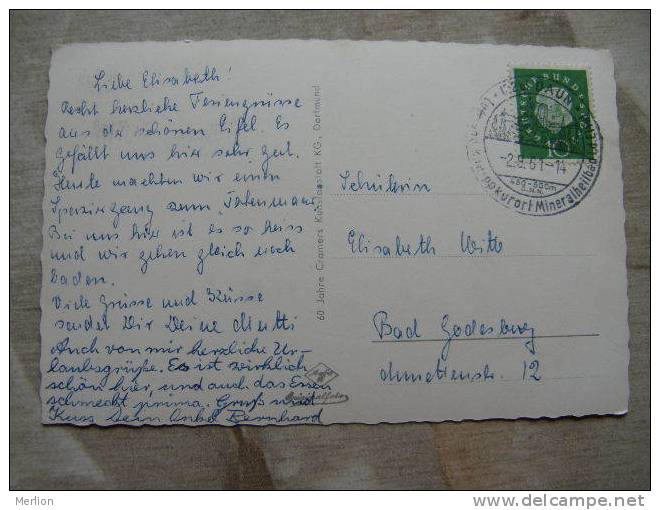 Liebe Elisabeth!
Recht herzliche Feriengrüsse
aus der schönen Eifel. Es
gefällt uns hier sehr gut.
Heute machten wir einen
Spaziergang zum "Totenmaar"
Bei uns hier ist es so heiss
und wir gehen gleich noch
baden.
Viele Grüsse und Küsse
sendet Dir Deine Mutti
Auch von mir herzliche Ur-
laubsgrüße. Es ist wirklich
schön hier, und auch das Essen
schmeckt prima. Gruß und
Kuss dein Onkel Bernhard
60 Jahre Cramers Kunstanstalt KG., Dortmund
DAUN
-2.8.61-14
Kneippkurort Mineralheilbad
10
Schülerin
Elisabeth Witte
Bad Godesberg
12
Merlion
www.delcampe.net